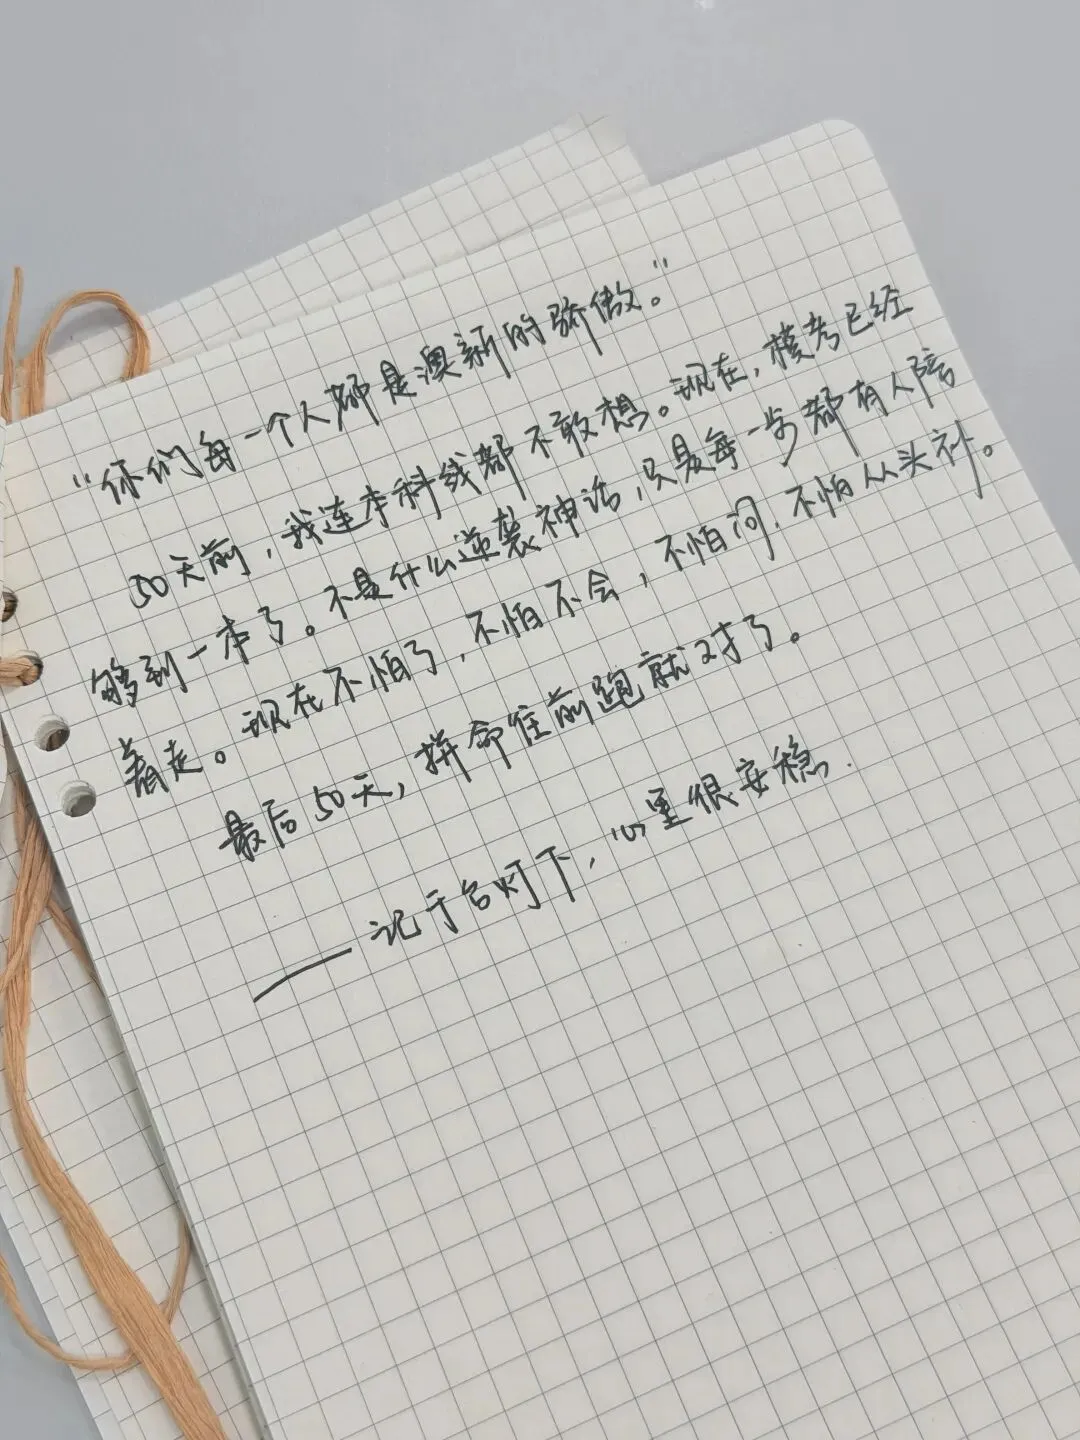 “你们每一个人都是澳新的骄傲。”
50天前，我连本科线都不敢想。现在，模考已经
够到一本了。不是什么逆袭神话，只是每一步都有人陪
着走。现在不怕了，不怕不会，不怕问，不怕从头补。
最后50天，拼命往前跑就对了。
——记于台灯下，心里很安稳.